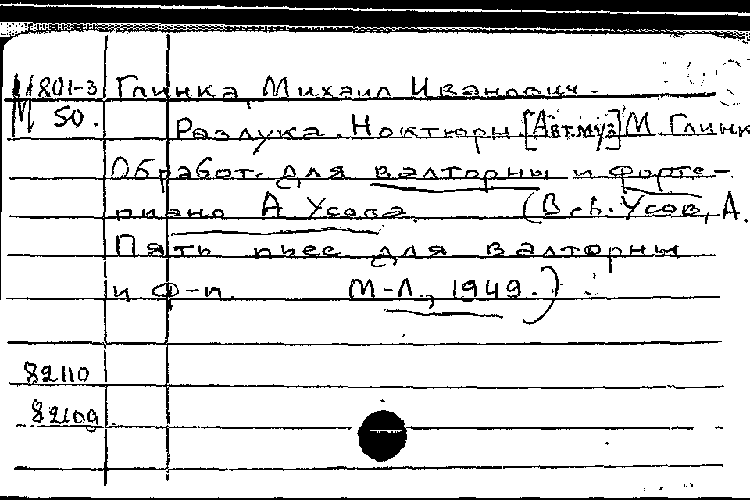 М801-3 Глинка, Михаил Иванович.
М 50. Разлука. Ноктюрн. [Авт.муз] М. Глинк
Обработ. для валторны и форте-
пиано А Усова. (В кн. Усов, А.
Пять пьес для валторны
и ф-п. М-Л., 1949.)
82110
82109